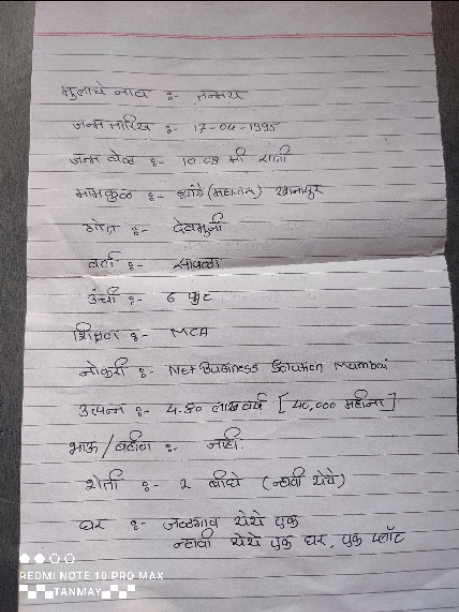 मुलाचे नाव :- तन्मय
जन्म तारिख :- 17-04-1995
जन्म वेळ :- 10.09 मी रात्री
मामकुळ :- (महाजन) खानापूर
गोत्र :- देवमुनी
वर्ण :- सावळा
उंची :- 6 फुट
शिक्षण :- MCA
नोकरी :- Net Business Solution Mumbai
उत्पन्न :- 4.80 लाख वर्ष [40,000 महीना]
भाऊ / बहीण :- नाही.
शेती :- 2 बीघे (न्हावी येथे)
घर :- जळगाव येथे एक
न्हावी येथे एक घर, एक प्लॉट
REDMI NOTE 10 PRO MAX
TANMAY